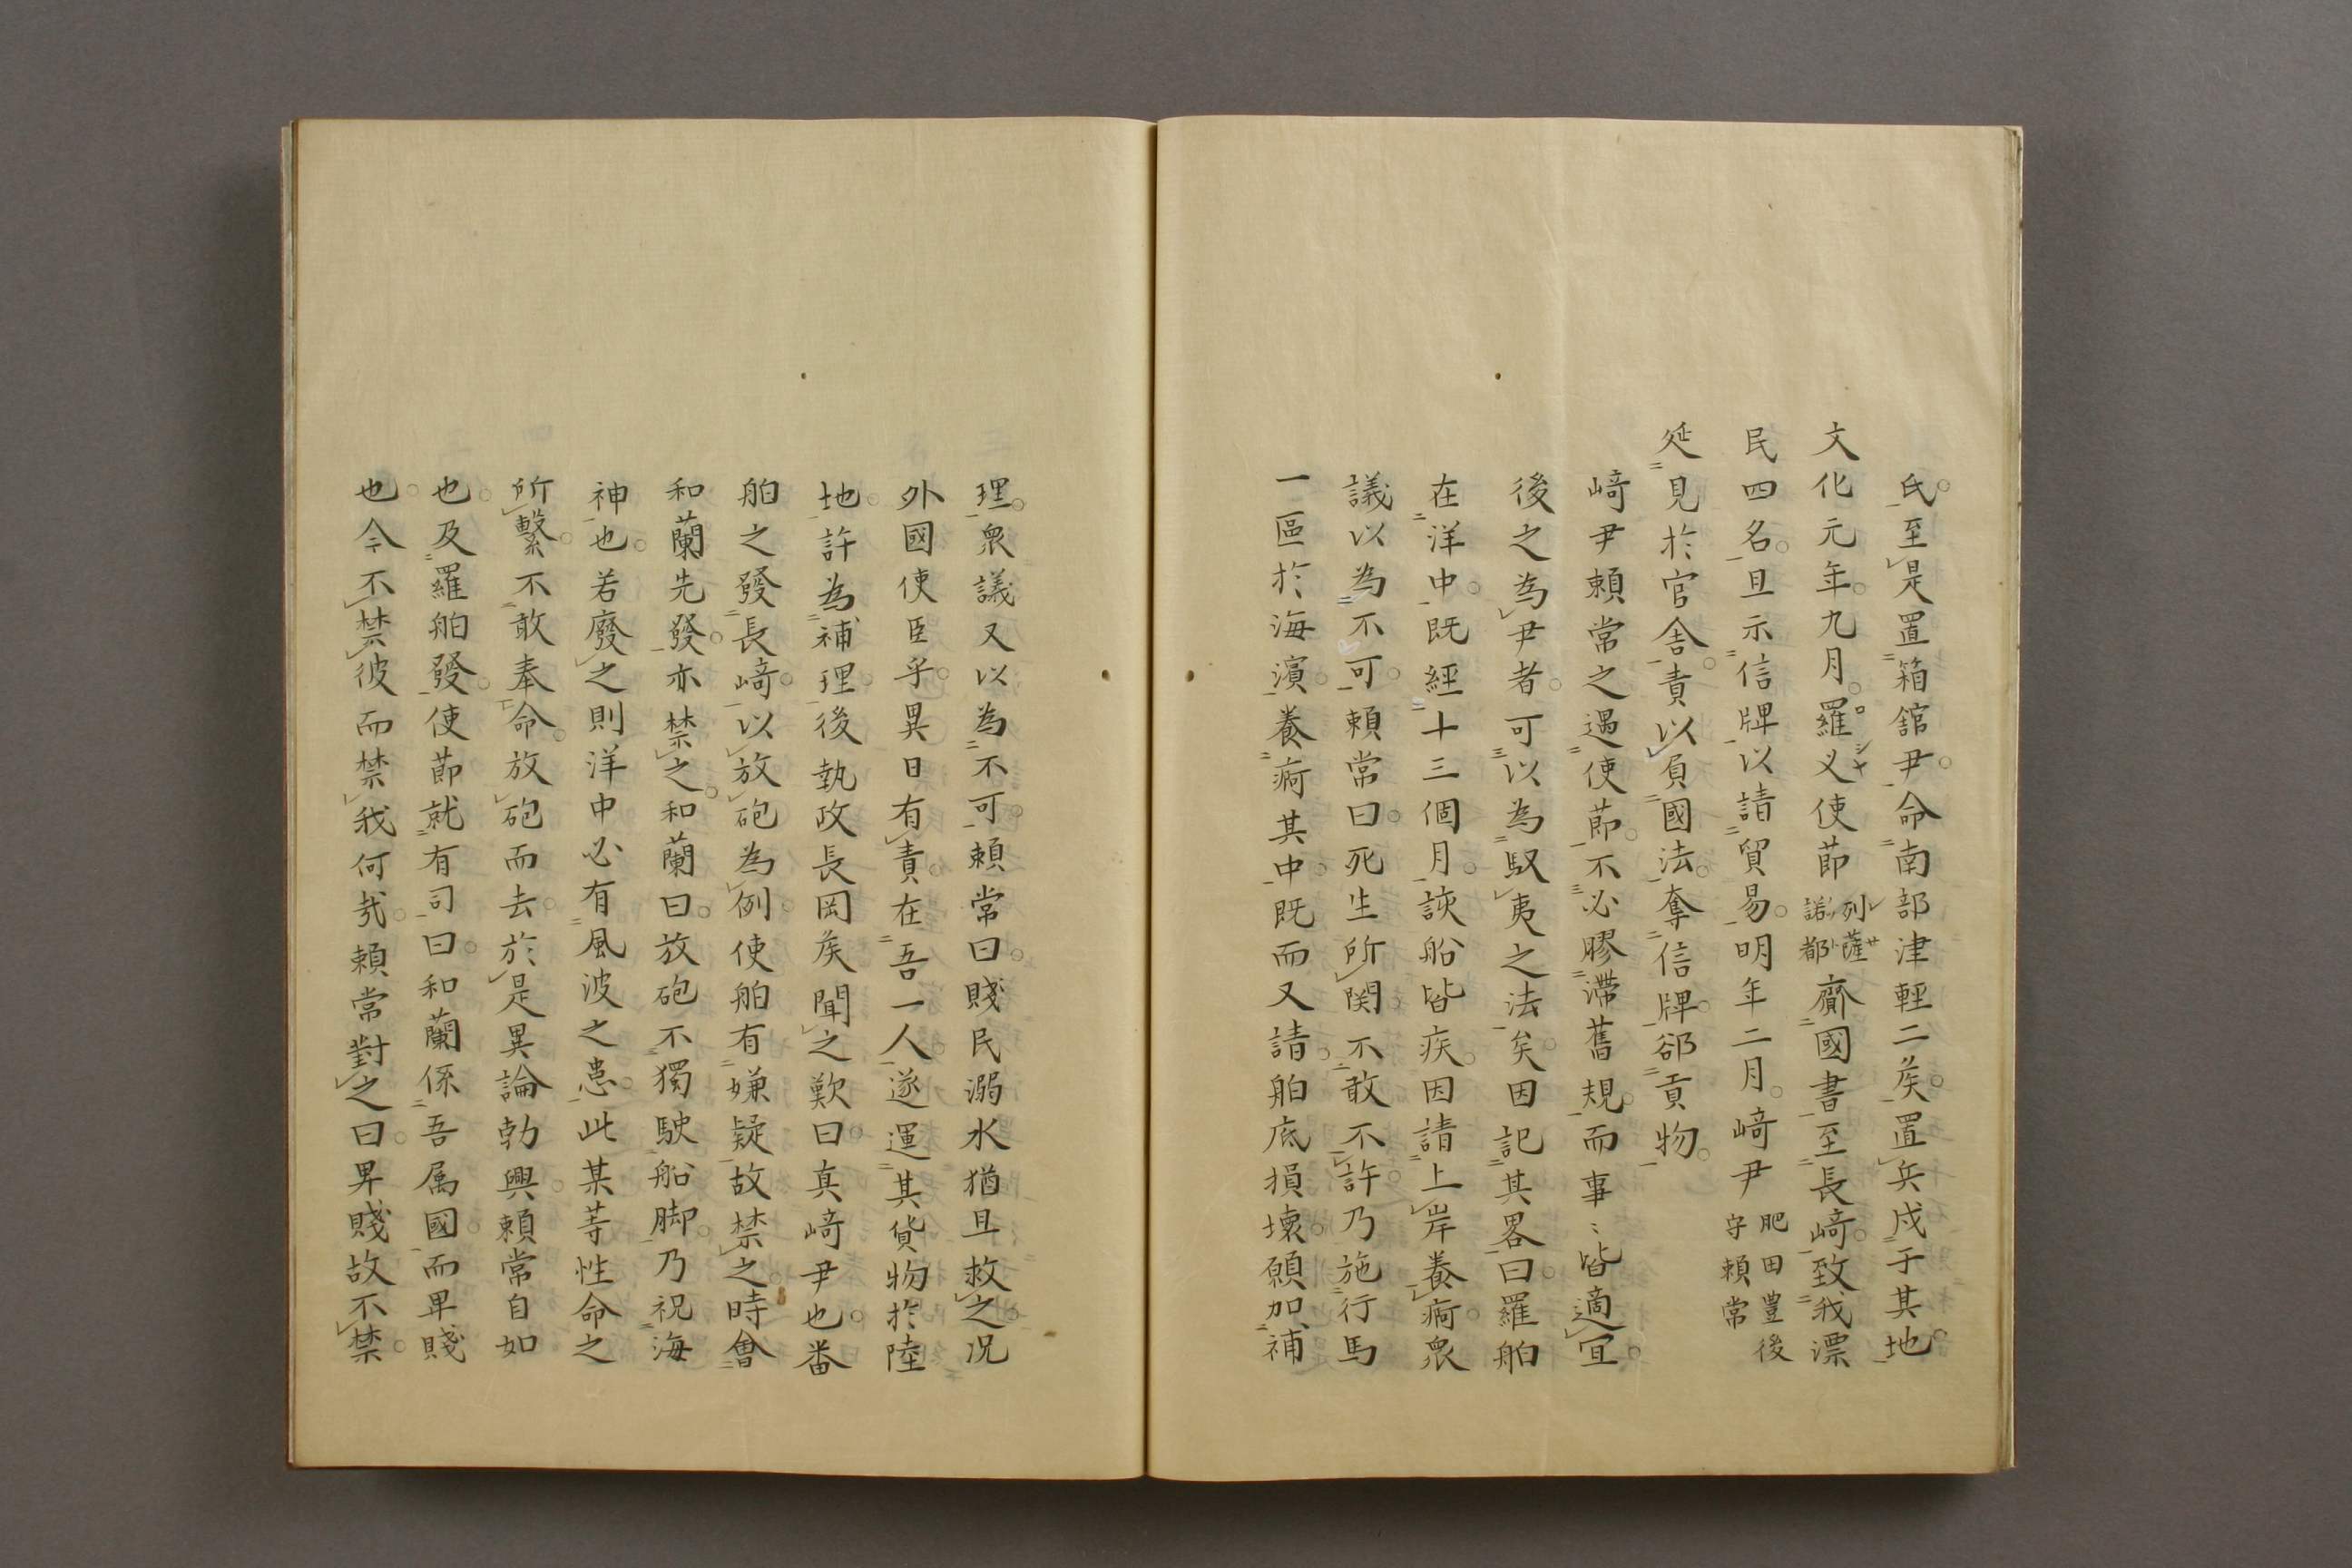 氏。至是置箱舘尹。命南部津軽二矦。置兵戍于其地。
文化元年。九月。羅叉使莭列薩諾都齎國書至長﨑。致我漂
民四名。且示信牌以請貿易。明年二月。﨑尹肥田豊後守頼常
延見於官舎。責以負國法。奪信牌。郤貢物。
﨑尹頼常之遇使莭。不必膠滯舊規。而事〻皆適宜。
後之為尹者。可以為馭夷之法矣。因記其畧曰。羅舶
在洋中。既經十三個月。該船皆疾。因請上岸養痾。衆
議以為不可。頼常曰。死生所関。不敢不許。乃施行馬
一區於海濱。養痾其中。既而又請。舶底損壞。願加補
理。衆議又以為不可。頼常曰。賤民溺水猶且救之。况
外國使臣乎。異日有責。在吾一人。遂運其貨物於陸
地。許為補理。後執政長岡矦聞之歎曰。真﨑尹也。番
舶之發長﨑。以放砲為例。使舶有嫌疑。故禁之。時會
和蘭先發。亦禁之。和蘭曰。放砲不獨駛船脚。乃祝海
神也。若廢之則洋中必有風波之患。此某等性命之
所繫。不敢奉命。放砲而去。於是異論勃興。頼常自如
也。及羅舶發。使莭就有司曰。和蘭係吾属國。而卑賤
也。今不禁彼而禁我何㢤。頼常對之曰。卑賤故不禁。